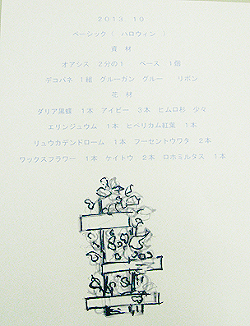 2013 10
ベーシック ( ハロウィン )
資 材
オアシス 2分の1 ベース 1個
デコパネ 1個 グルーガン グルー リボン
花 材
ダリア黒蝶 1本 アイビー 3本 ヒムロ杉 少々
エリンジュウム 1本 ヒペリカム紅葉 1本
リュウカデンドローム 1本 フーセントウワタ 2本
ワックスフラワー 1本 ケイトウ 2本 ロホミルタス 1本